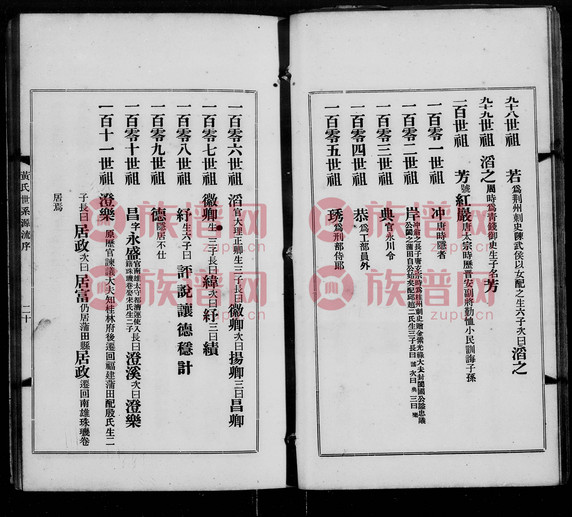 九十八世祖 若 爲荆州剌史陳武侯以女配之生六子次曰滔之
九十九世祖 滔之 周時爲青錢御史生子名芳
一百世祖 芳 號紅巖 唐太宗時歷晋安副將勤恤小民訓誨子孫
一百零一世祖 冲 唐時隱者
一百零二世祖 岸
一百零三世祖 典 官永川令
一百零四世祖 恭 爲工部員外
一百零五世祖 琇 爲刑都侍郎
一百零六世祖 滔 官大理正卿生三子長曰徽卿次曰揚卿三曰昌卿
一百零七世祖 徽卿 生三子長曰緯次曰紓三曰績
一百零八世祖 紓 生六子曰評說讓德穩計
一百零九世祖 德 隱居不仕
一百零十世祖 昌 字永盛 長曰澄溪次曰澄樂
一百十一世祖 澄樂 原歷官諫議大夫知桂林府後遷回福建莆田配殷氏生二
子長曰居政次曰居富仍居蒲田縣居政遷回南雄珠璣巷
居焉
黃氏世系源流序
二十
族谱网
zupu.cn